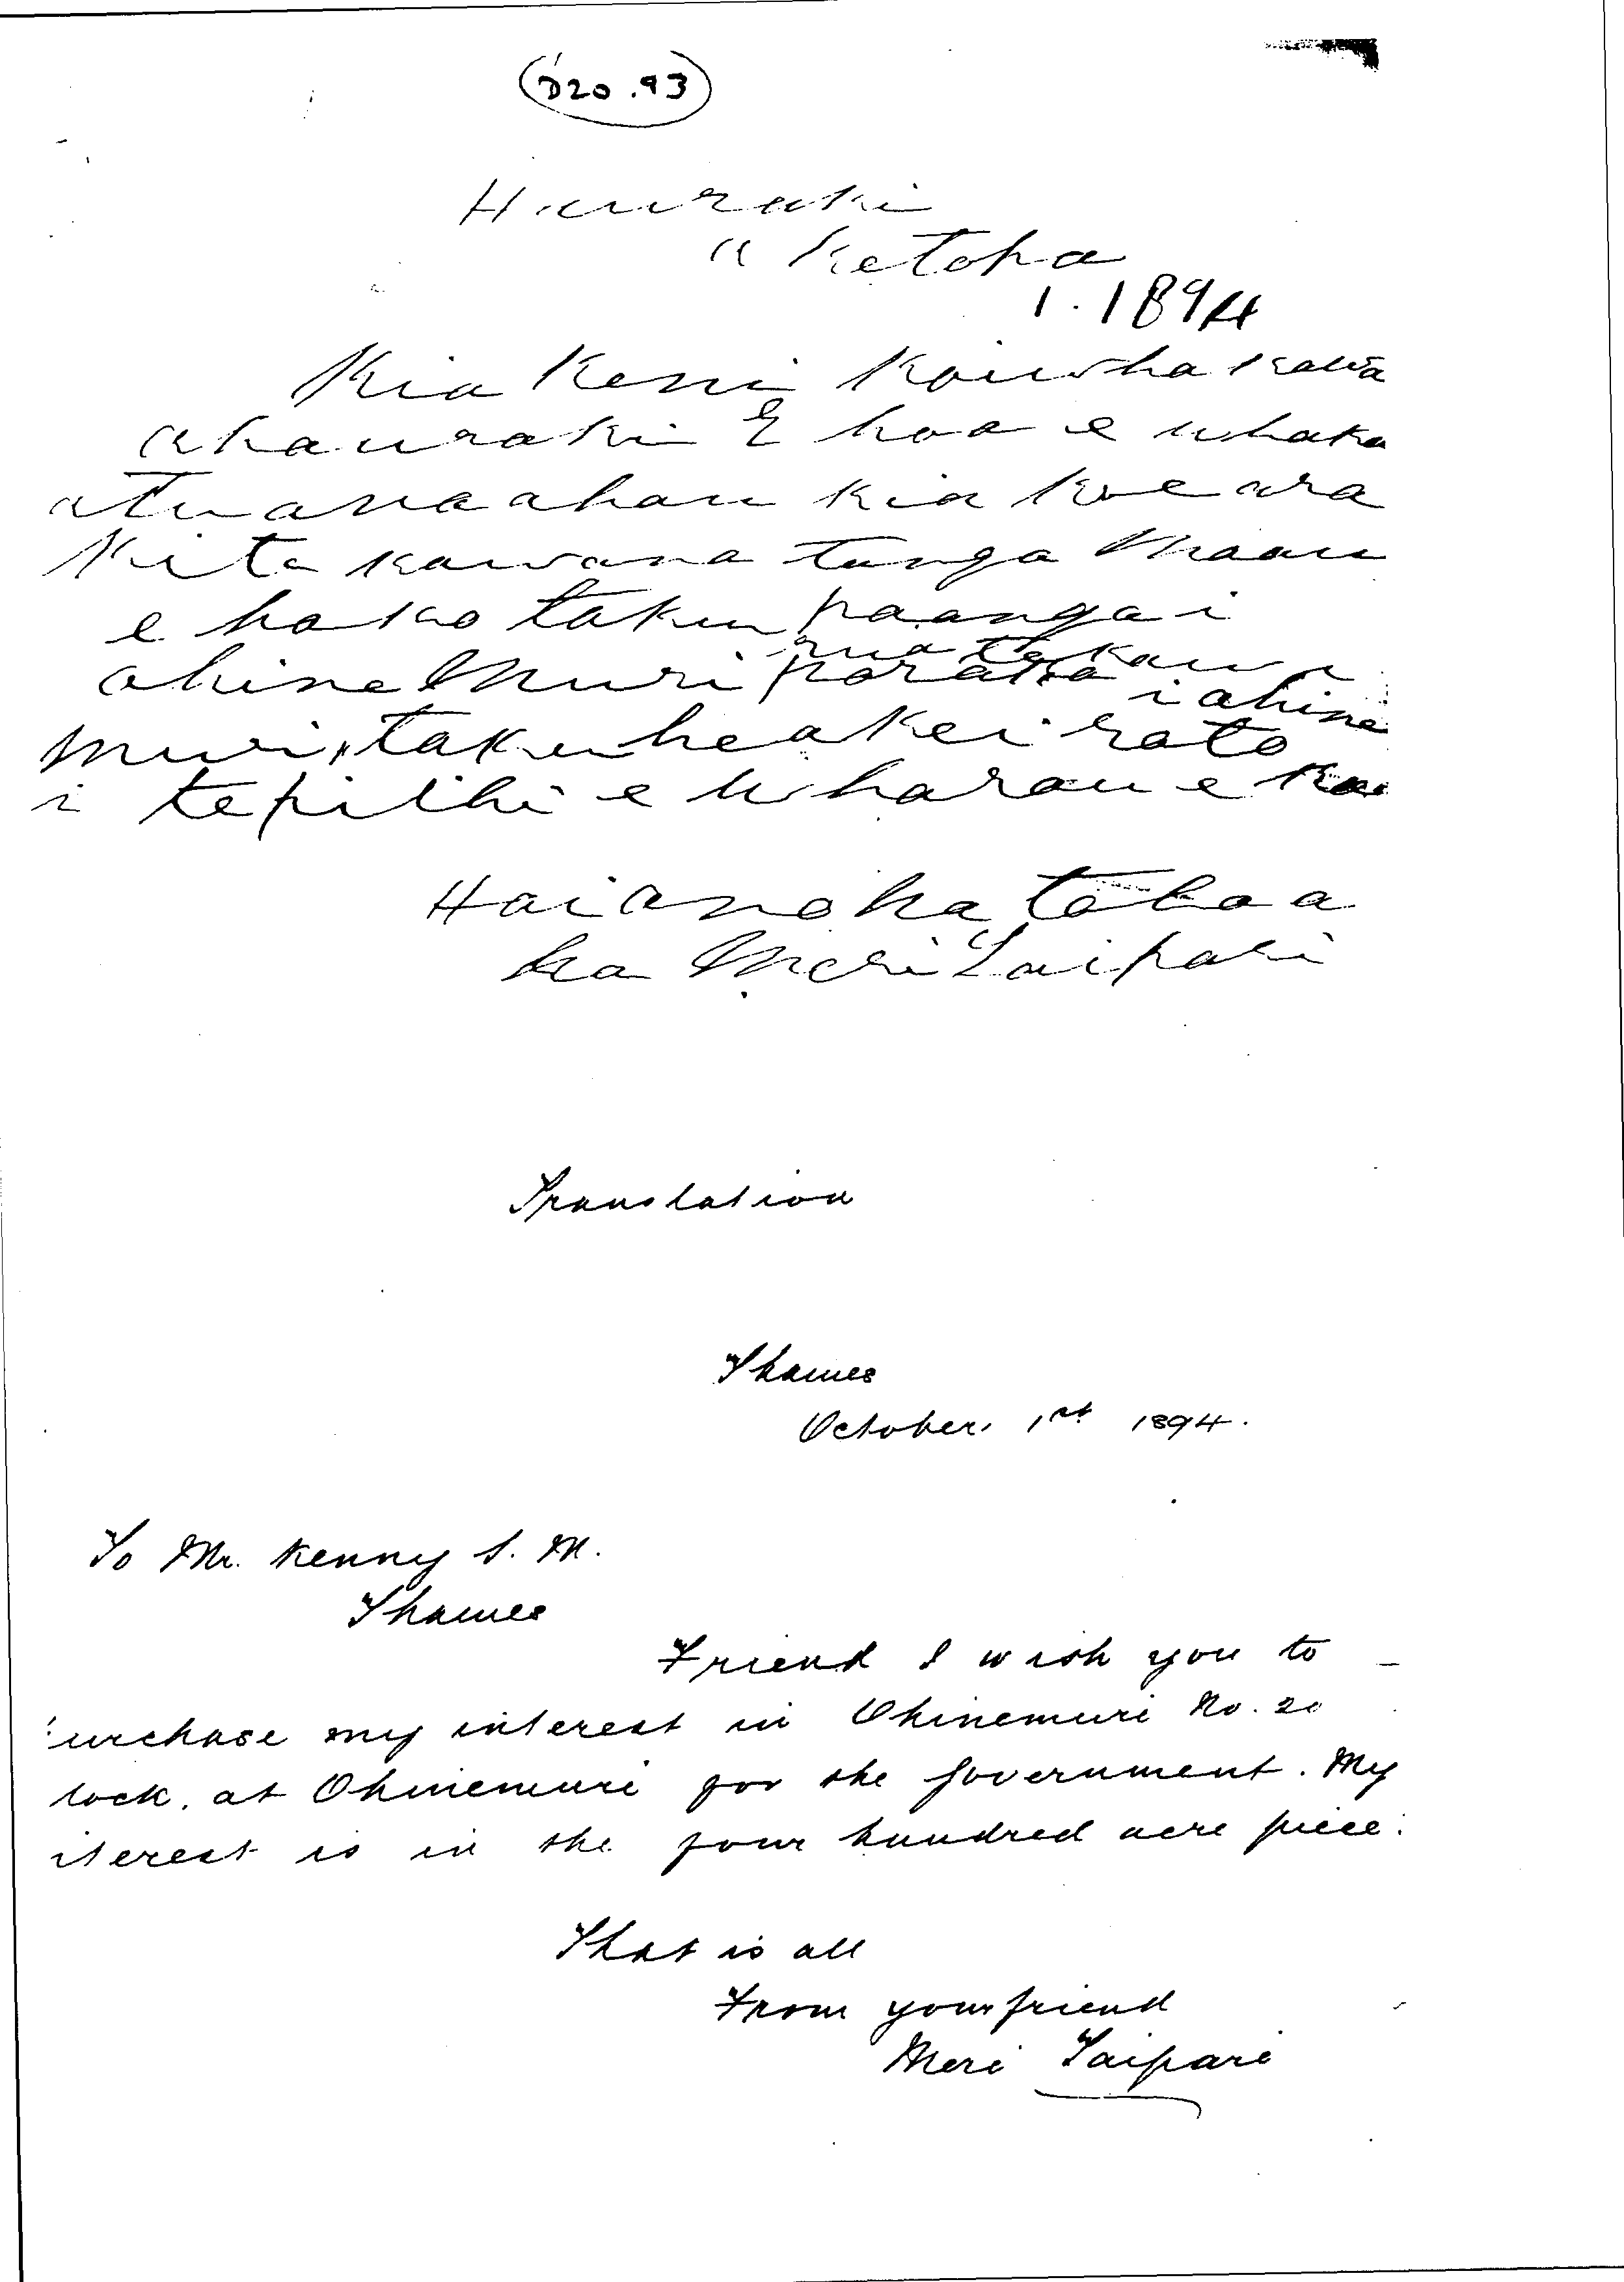 D20.93
Hauraki
aketopa
1.1894
Kia Keni Kaiwhakawa
ahauraki E hoa e whaka
atuana ahau kia koe ara
Kite kawana tanga Maau
e hoko taku paanga i
ruatekau
ahinemuri poraka i ahine
muri, taku hea kei roto
i te pihi e wharau eka
Hai ano na to hoa
na Meri Taipari
Translation
Thames
October 1st 1894.
To Mr. Kenny S. M.
Thames
Friend I wish you to
urchase my interest in Ohinemuri No. 20
lock. at Ohinemuri for the Government. My
terest is in the four hundred acre piece.
That is all
From your friend
Meri Taipari